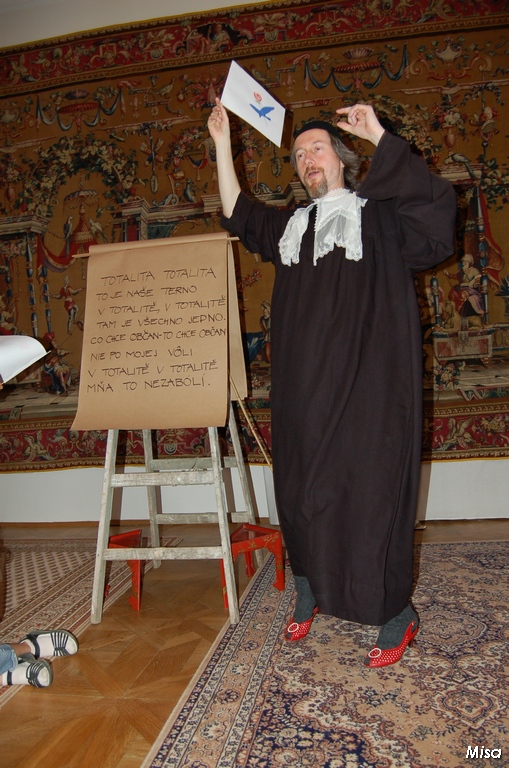 TOTALITA TOTALITA
TO JE NAŠE TERNO
V TOTALITĚ, V TOTALITĚ
TAM JE VŠECHNO JEDNO.
CO CHCE OBČAN-TO CHCE OBČAN
NIE PO MOJEJ VÔLI
V TOTALITĚ V TOTALITĚ
MŇA TO NEZABOLÍ.
Misa